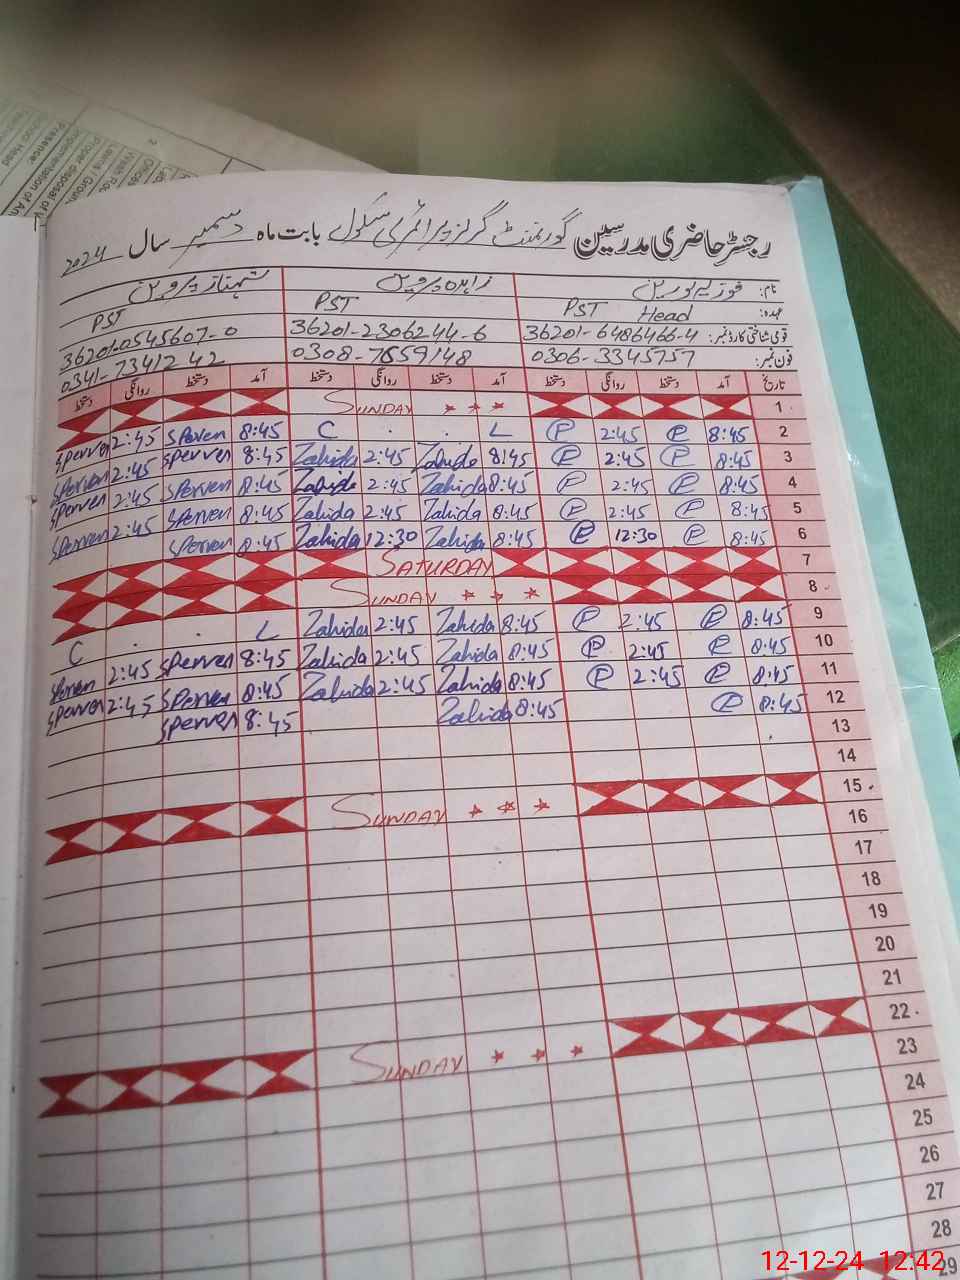 رجسٹر حاضری مدرسین گورنمنٹ گرلز پرائمری سکول بابت ماہ دسمبر سال 2024
نام: فوزیہ نورین زاہدہ پروین شہناز پروین
عہدہ: PST Head PST PST
قومی شناختی کارڈ نمبر: 36201-6486466-4 36201-2306244-6 36201-0545607-0
فون نمبر: 0306-3345757 0308-7659148 0341-7341242
تاریخ آمد دستخط روانگی دستخط آمد دستخط روانگی دستخط آمد دستخط روانگی دستخط
1 SUNDAY
2 8:45 P 2:45 P L . . C 8:45 SPerven 2:45 SPerven
3 8:45 P 2:45 P 8:45 Zahida 2:45 Zahida 8:45 SPerven 2:45 SPerven
4 8:45 P 2:45 P 8:45 Zahida 2:45 Zahida 8:45 SPerven 2:45 SPerven
5 8:45 P 2:45 P 8:45 Zahida 2:45 Zahida 8:45 SPerven 2:45 SPerven
6 8:45 P 12:30 P 8:45 Zahida 12:30 Zahida 8:45 SPerven
7 SATURDAY
8 SUNDAY
9 8:45 P 2:45 P 8:45 Zahida 2:45 Zahida L . . C
10 8:45 P 2:45 P 8:45 Zahida 2:45 Zahida 8:45 SPerven 2:45 SPerven
11 8:45 P 2:45 P 8:45 Zahida 2:45 Zahida 8:45 SPerven 2:45 SPerven
12 8:45 P 8:45 Zahida 8:45 SPerven
13
14
15 SUNDAY
16
17
18
19
20
21
22 SUNDAY
23
24
25
26
27
28
29
12-12-24 12:42